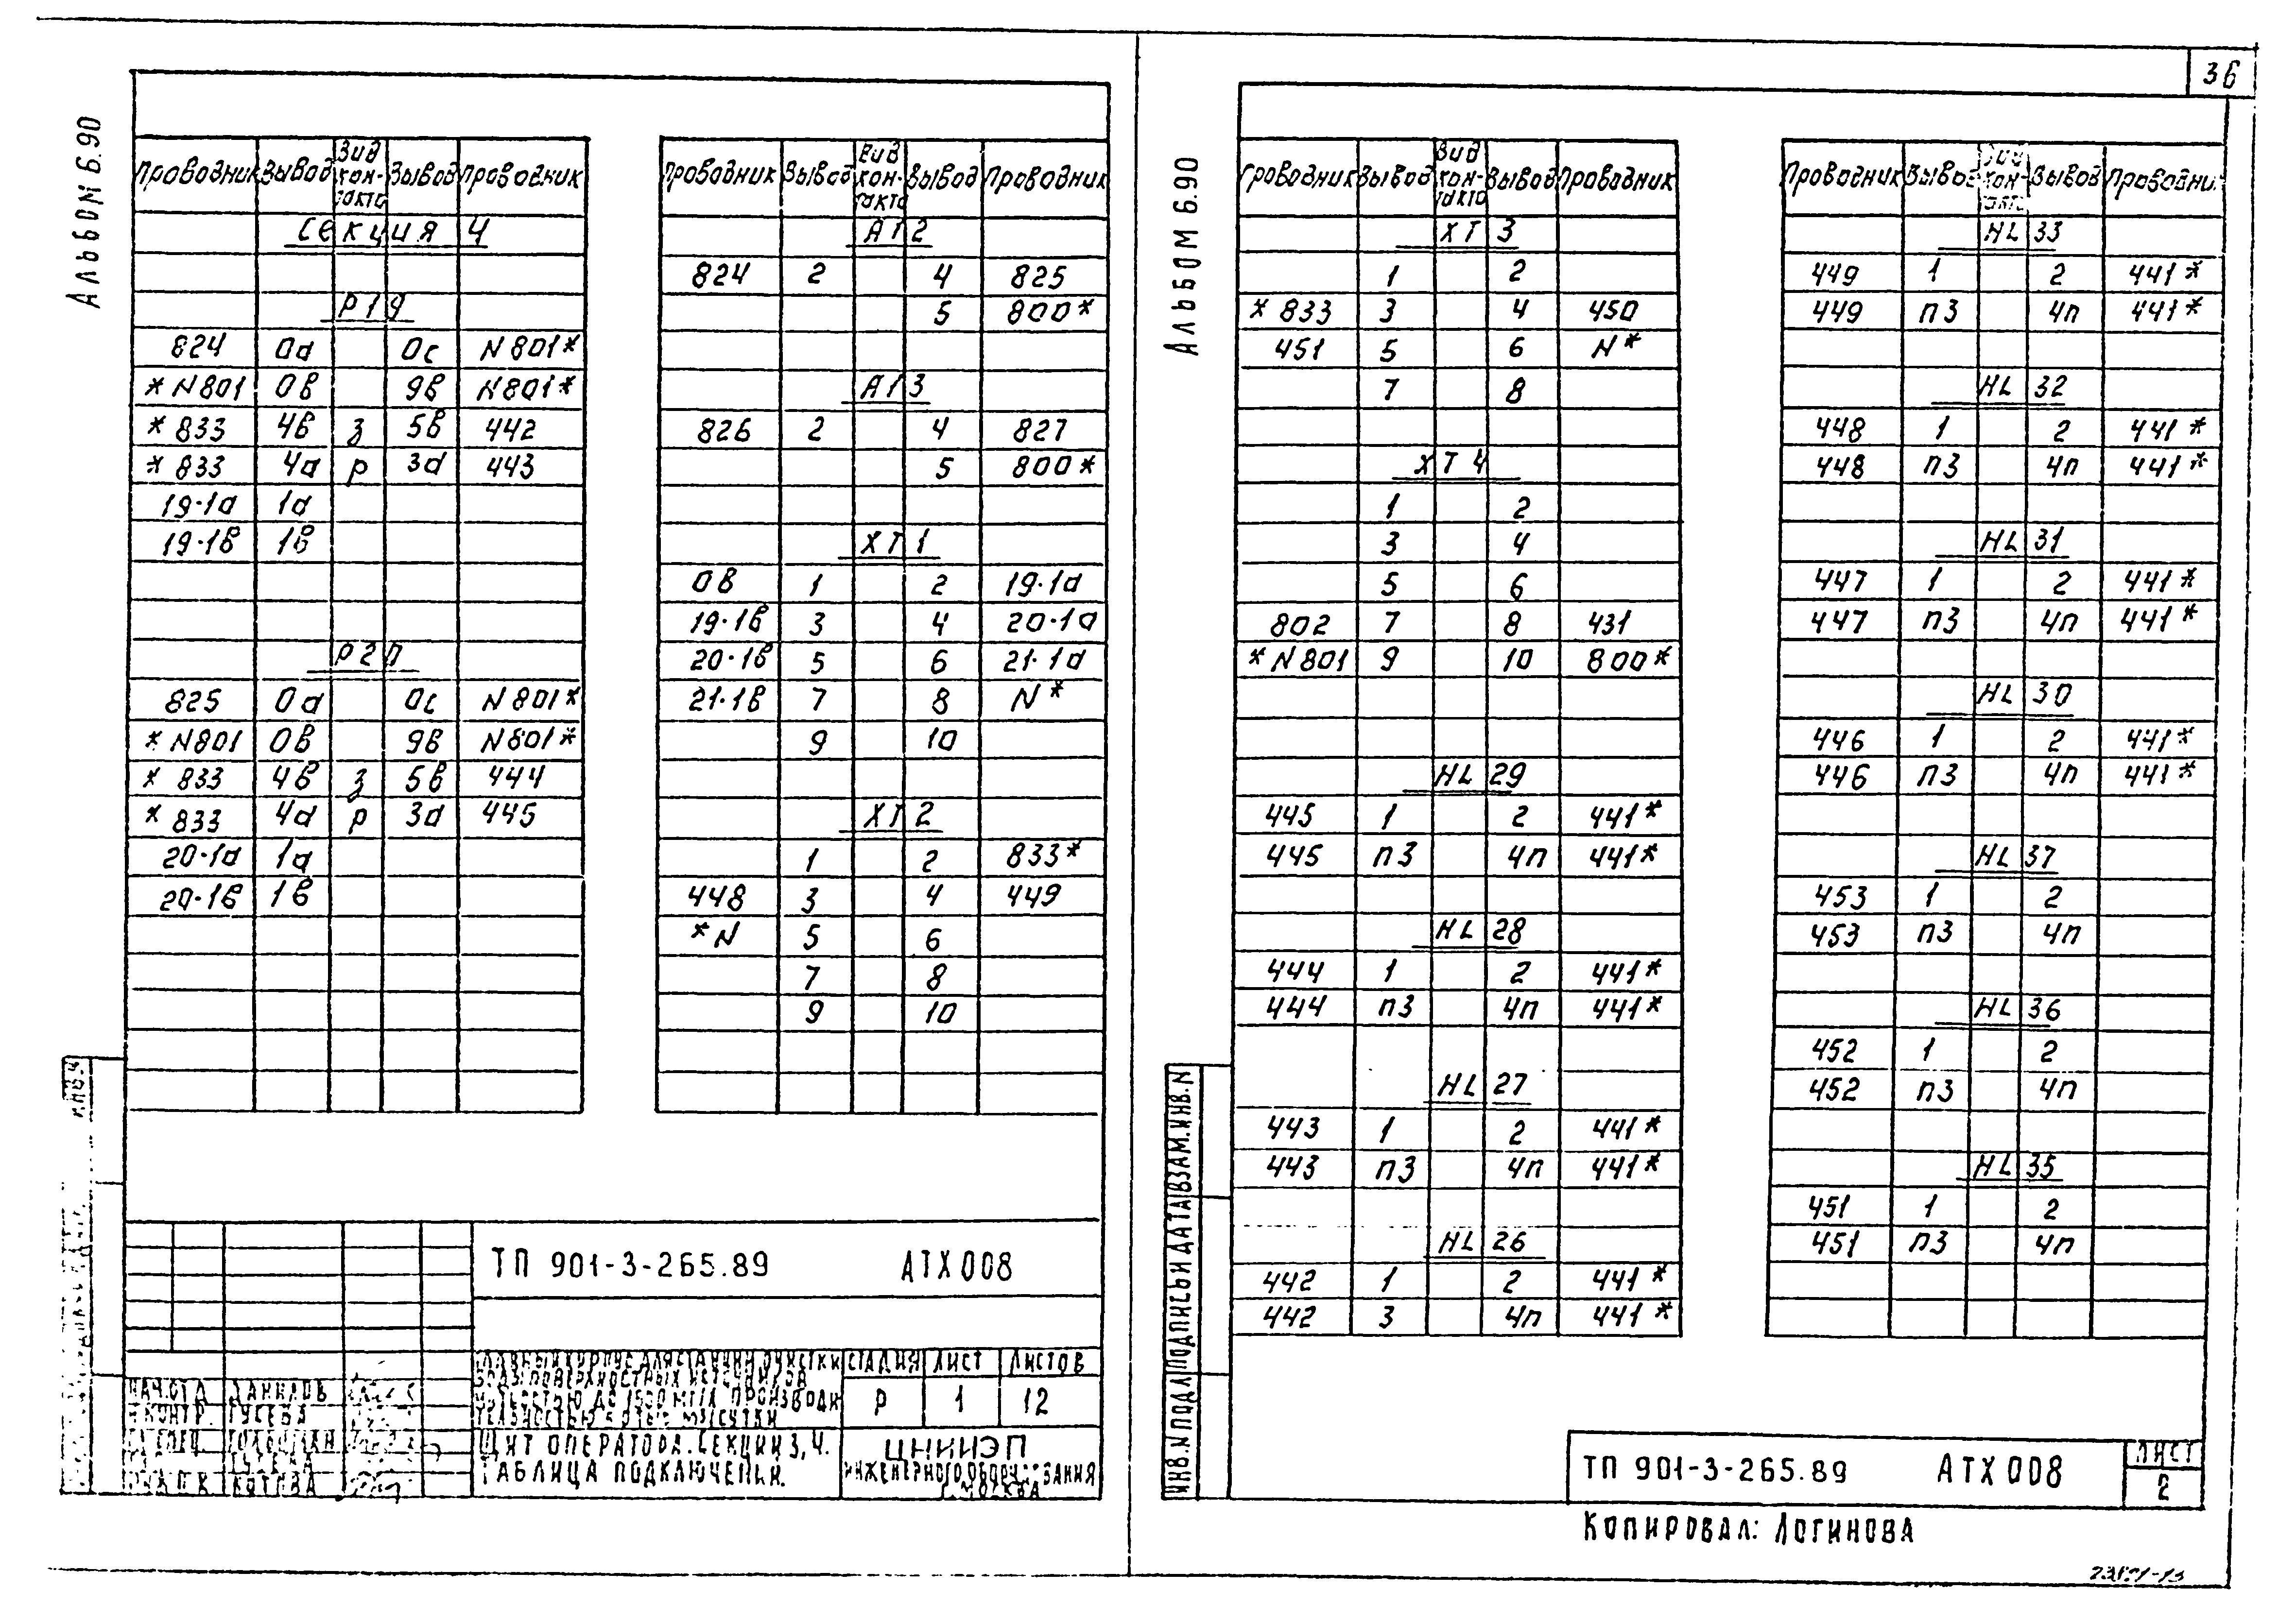 36
Альбом 6.90
Проводник Вывод Вид кон-такта Вывод Проводник
Секция 4
Р19
824 0а 0с N801*
*N801 0в 9в N801*
*833 4в з 5в 442
*833 4а р 3а 443
19-1а 1а
19-1в 1в
Р20
825 0а 0с N801*
*N801 0в 9в N801*
*833 4в з 5в 444
*833 4а р 3а 445
20-1а 1а
20-1в 1в
Проводник Вывод Вид кон-такта Вывод Проводник
А12
824 2 4 825
5 800*
А13
826 2 4 827
5 800*
ХТ1
0в 1 2 19-1а
19-1в 3 4 20-1а
20-1в 5 6 21-1а
21-1в 7 8 N*
9 10
ХТ2
1 2 833*
448 3 4 449
*N 5 6
7 8
9 10
ТП 901-3-265.89 АТХ 008
СТАДИЯ ЛИСТ ЛИСТОВ
Р 1 12
НАЧ.ОТД ДАНИЛОВ
Н.КОНТР. ГУСЕВА
ЩИТ ОПЕРАТОРА. СЕКЦИИ 3, 4.
ТАБЛИЦА ПОДКЛЮЧЕНИЙ.
ЦНИИЭП
ИНЖЕНЕРНОГО ОБОРУДОВАНИЯ
Г. МОСКВА
Альбом 6.90
Проводник Вывод Вид кон-такта Вывод Проводник
ХТ3
1 2
*833 3 4 450
451 5 6 N*
7 8
ХТ4
1 2
3 4
5 6
802 7 8 431
*N801 9 10 800*
HL 29
445 1 2 441*
445 п3 4п 441*
HL 28
444 1 2 441*
444 п3 4п 441*
HL 27
443 1 2 441*
443 п3 4п 441*
HL 26
442 1 2 441*
442 3 4п 441*
Проводник Вывод Вид кон-такта Вывод Проводни
HL 33
449 1 2 441*
449 п3 4п 441*
HL 32
448 1 2 441*
448 п3 4п 441*
HL 31
447 1 2 441*
447 п3 4п 441*
HL 30
446 1 2 441*
446 п3 4п 441*
HL 37
453 1 2
453 п3 4п
HL 36
452 1 2
452 п3 4п
HL 35
451 1 2
451 п3 4п
ИНВ.N ПОДЛ ПОДПИСЬ И ДАТА ВЗАМ.ИНВ.N
ТП 901-3-265.89 АТХ 008
ЛИСТ
2
Копировал: Логинова